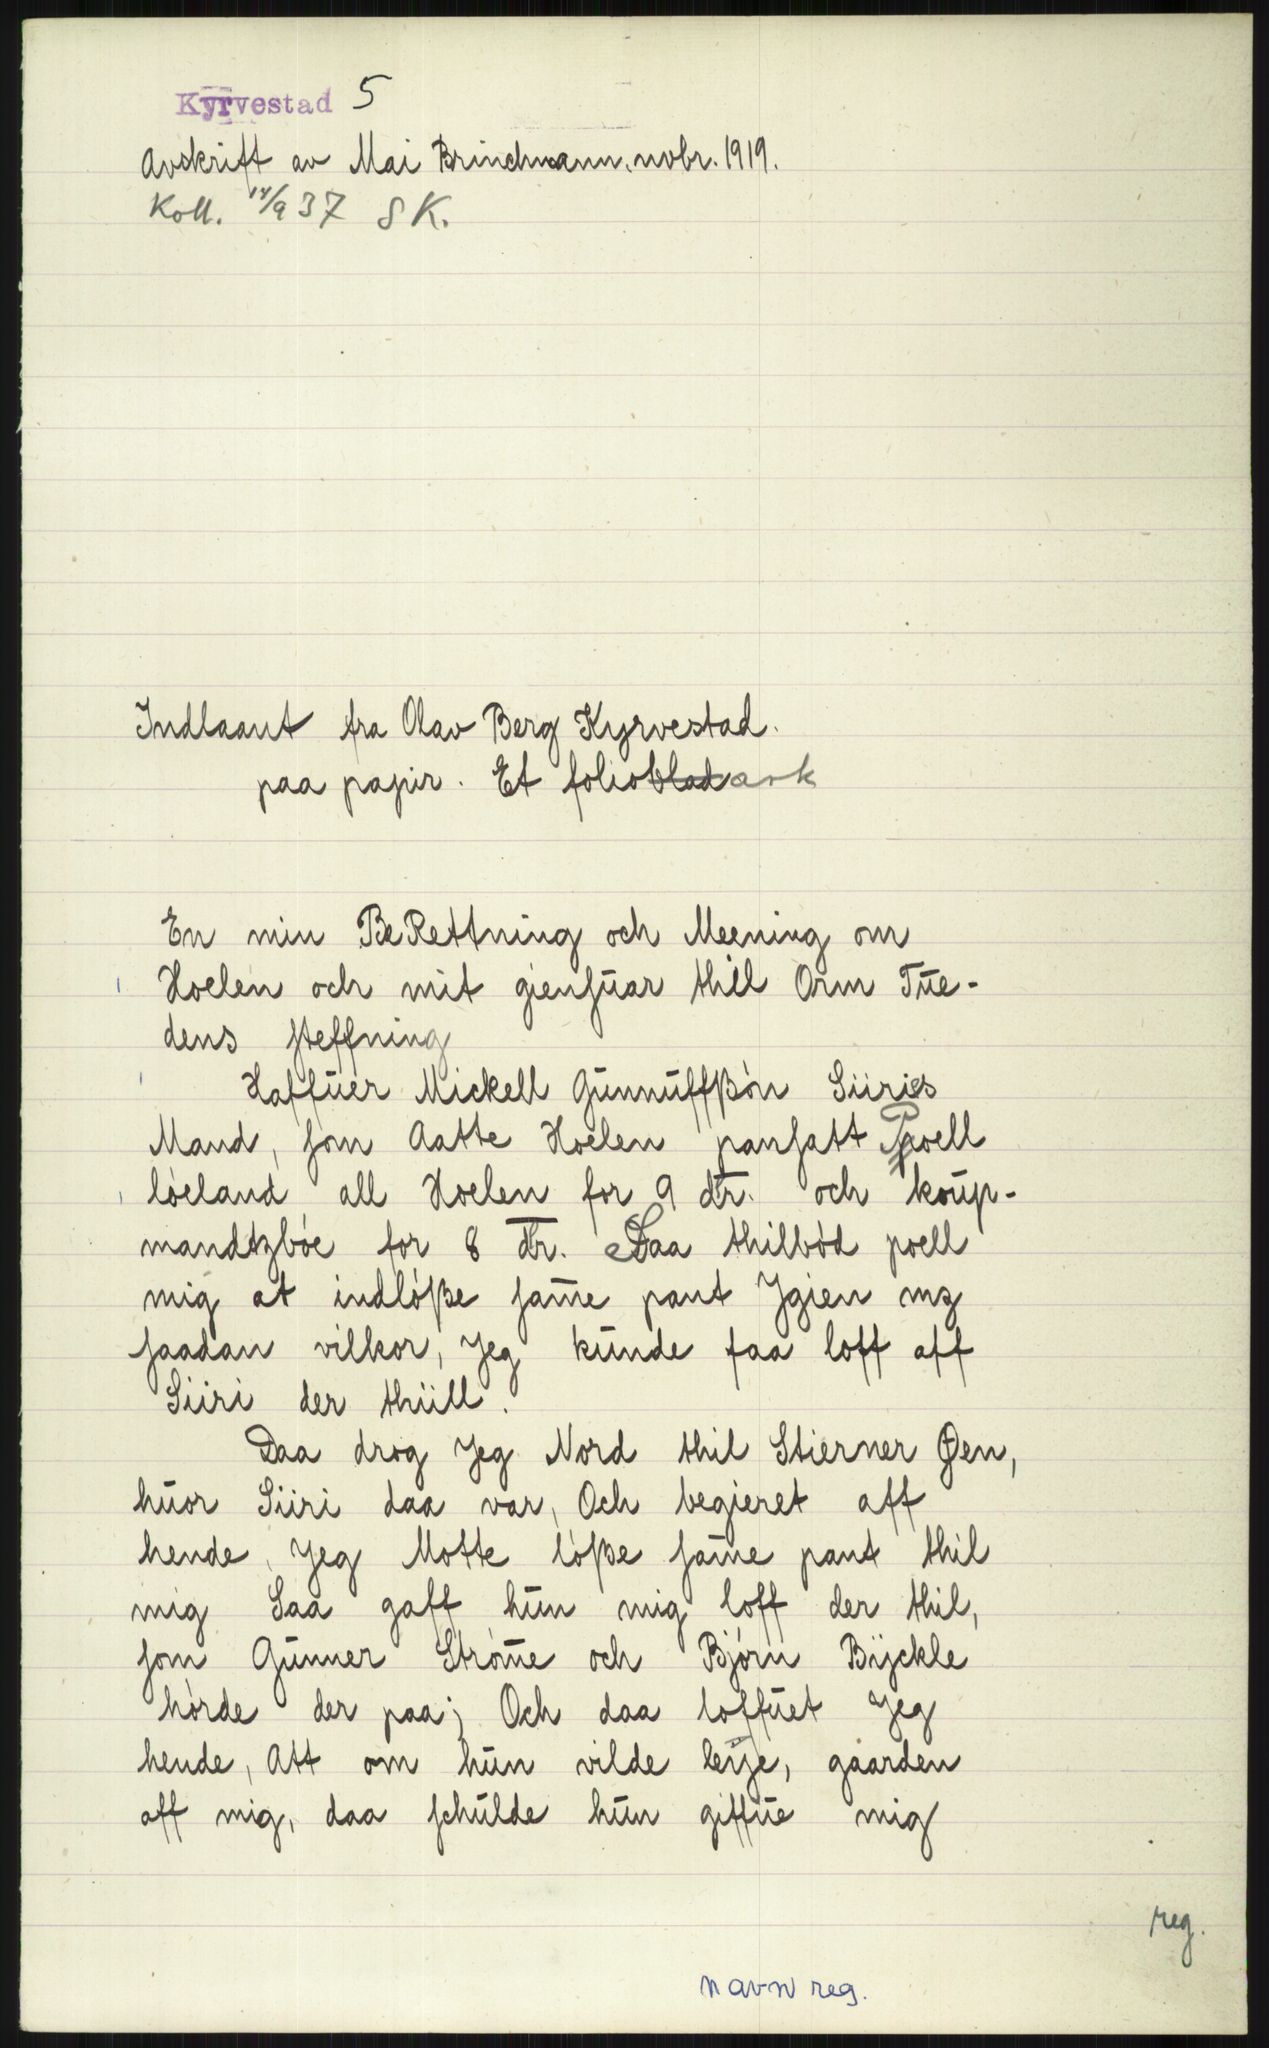 Kyrvestad 5
Avskrift av Mai Brinchmann, novbr. 1919.
Koll. 14/9 37 SK.
Indlaant fra Olav Berg Kyrvestad.
paa papir. Et folioblad ark
En min BeRettning och Meening om
Hoelen och mit giensuar thill Orm Tue-
dens steffning
Haffuer Mickell Gunnuffßón Siiries
Mand, som Aatte Hoelen pansatt Poell
lóeland all Hoelen for 9 dr. och koup-
mandtzbóe for 8 dr. Daa thilbód poell
mig at indlóße same pant Ygien mz
saadan vilkor, Jeg kunde faa loff aff
Siiri der thiill.
Daa drog Jeg Nord thil Stierner Øen,
huor Siiri daa var, Och begieret aff
hende, Jeg Motte lóße same pant thil
mig Saa gaff hun mig loff der thil,
som Gunner Stróme och Bjórn Bijckle
hórde der paa; Och daa loffuet Jeg
hende, Att om hun vilde leije, gaarden
aff mig, daa schulde hun giffue mig
reg.
navn reg.